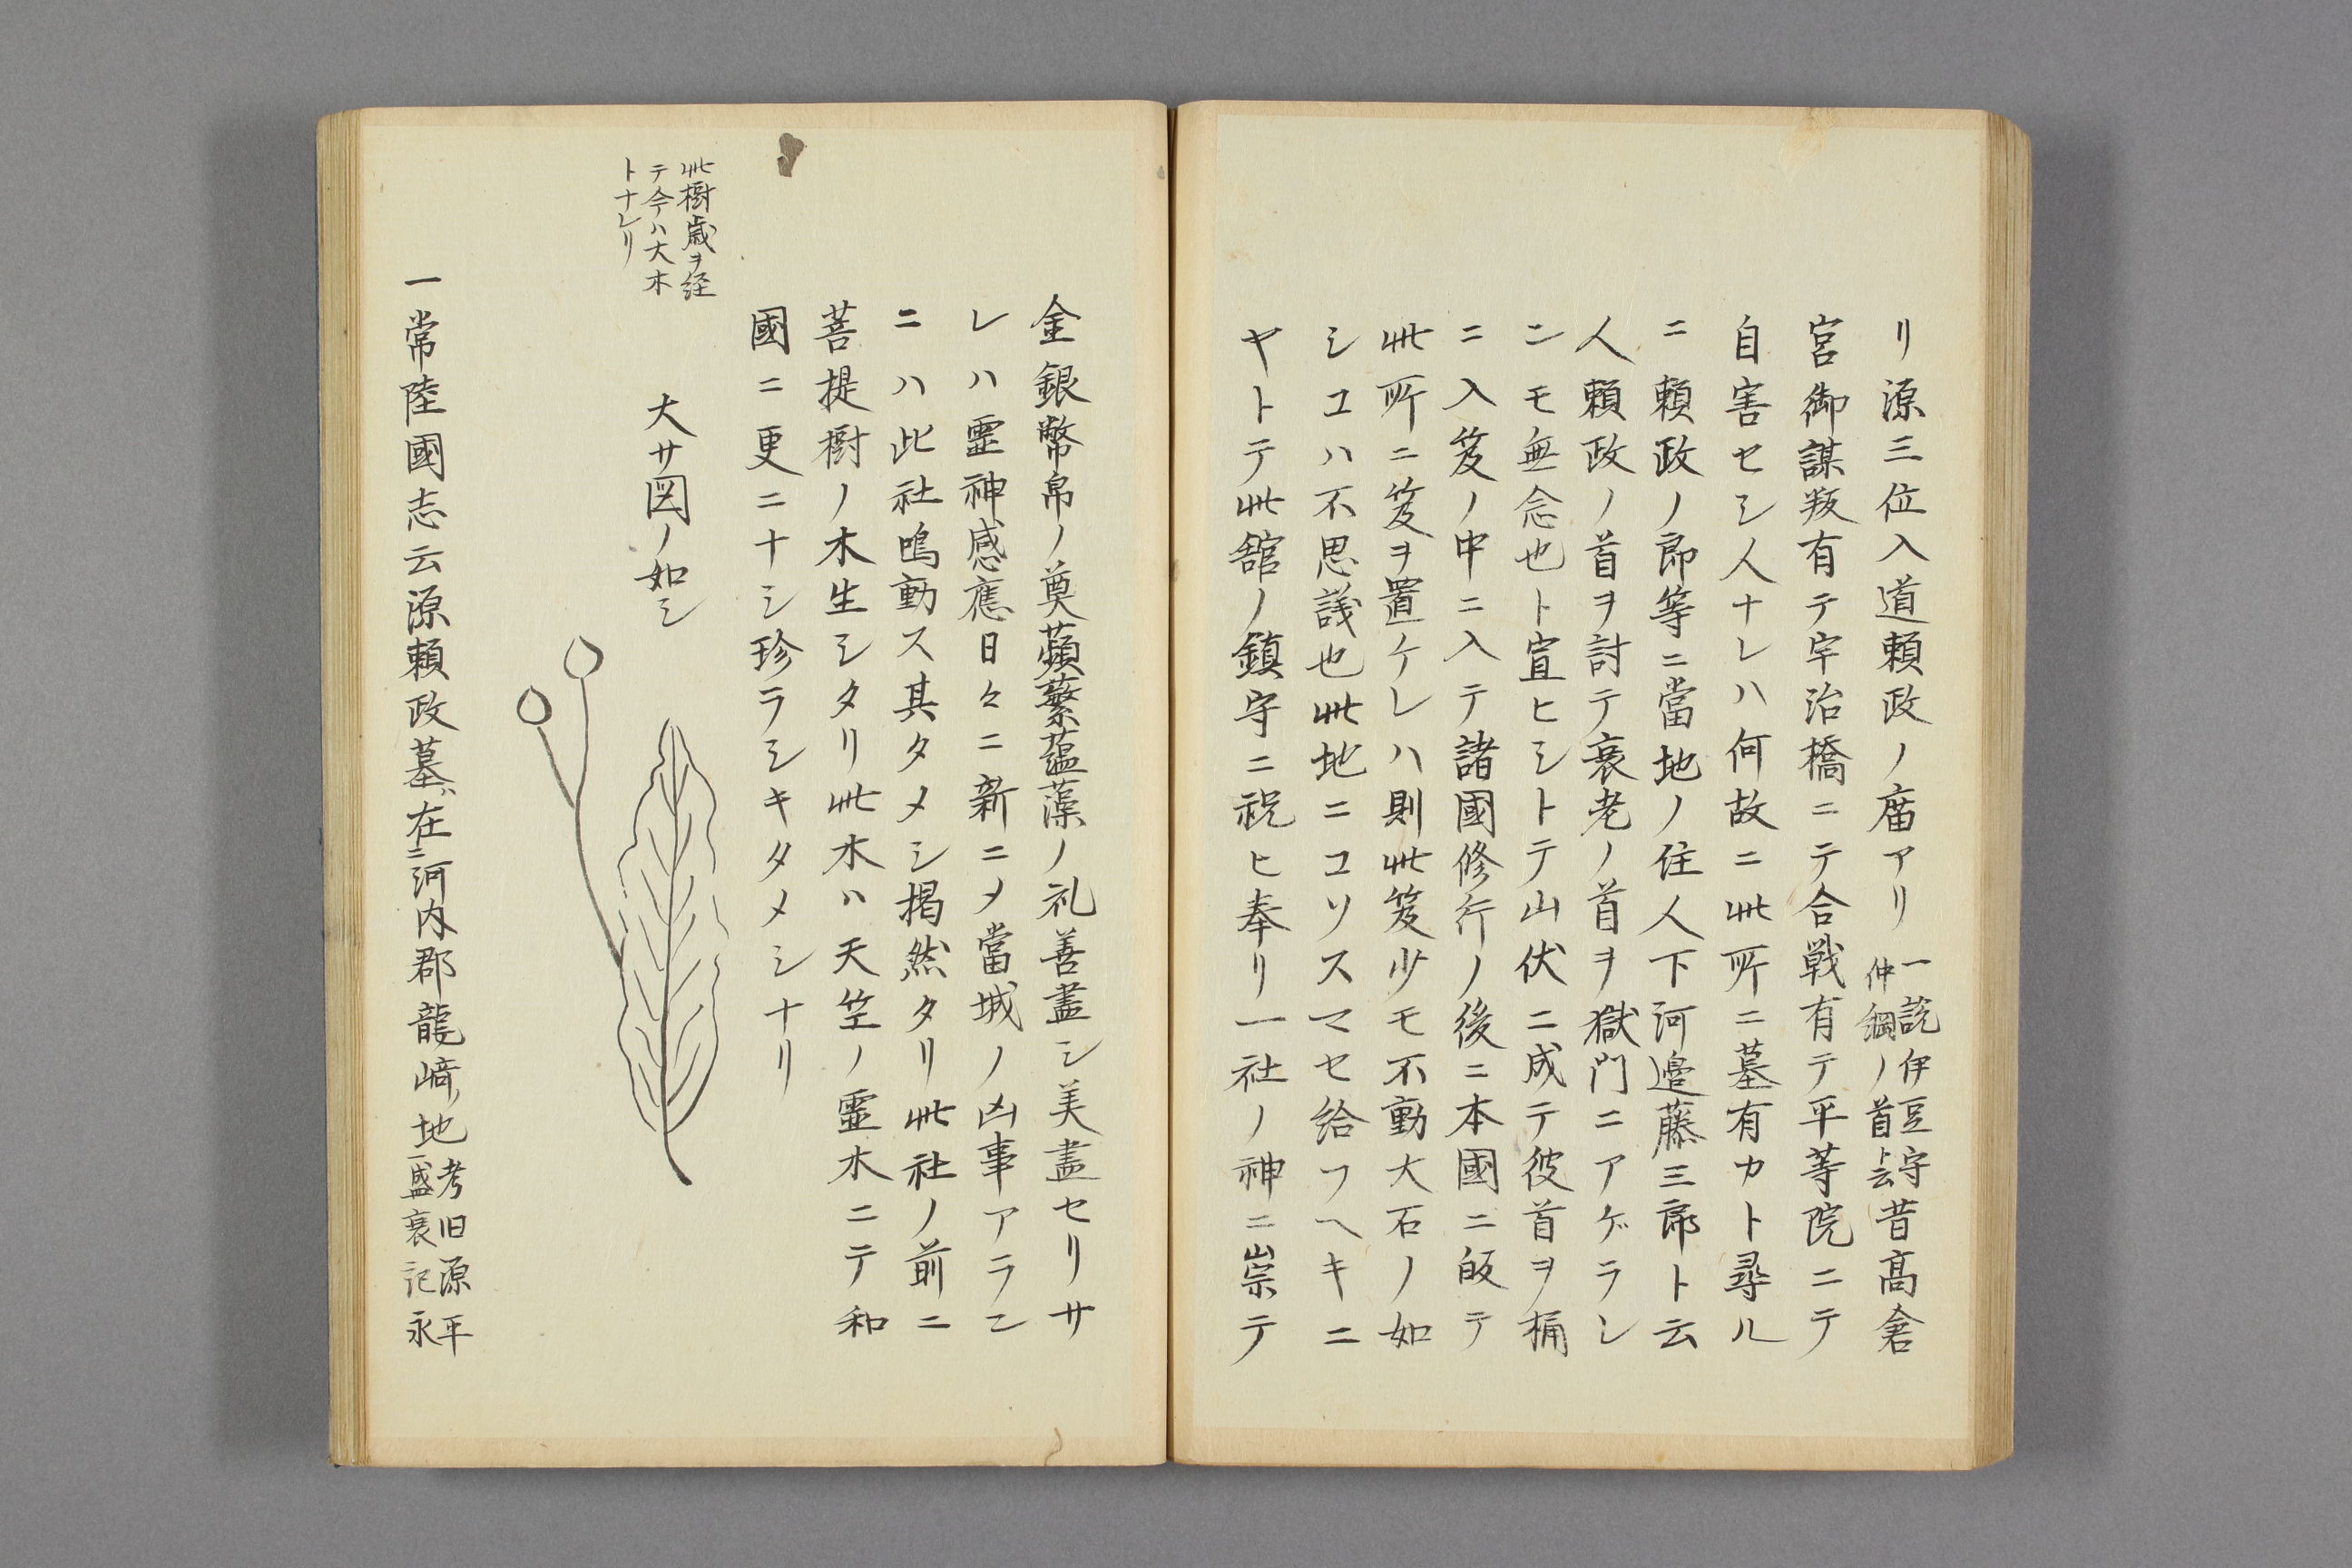 リ源三位入道頼政ノ廟アリ一説伊豆守仲綱ノ首ト云昔髙倉
宮御謀叛有テ宇治橋ニテ合戦有テ平等院ニテ
自害セシ人ナレハ何故ニ此所ニ墓有カト尋ル
ニ頼政ノ郎等ニ當地ノ住人下河邉藤三郎ト云
人頼政ノ首ヲ討テ衰老ノ首ヲ獄門ニアゲラレ
ンモ無念也ト宣ヒシトテ山伏ニ成テ彼首ヲ桶
ニ入笈ノ中ニ入テ諸國修行ノ後ニ本國ニ皈テ
此所ニ笈ヲ置ケレハ則此笈少モ不動大石ノ如
シコハ不思議也此地ニコソスマセ給フヘキニ
ヤトテ此舘ノ鎮守ニ祝ヒ奉リ一社ノ神ニ崇テ
金銀幣帛ノ奠蘋蘩蘊藻ノ礼善盡シ美盡セリサ
レハ靈神感應日々ニ新ニメ當城ノ凶事アラン
ニハ此社鳴動ス其タメシ掲然タリ此社ノ前ニ
菩提樹ノ木生シタリ此木ハ天竺ノ靈木ニテ和
國ニ更ニナシ珍ラシキタメシナリ
此樹歳ヲ経
テ今ハ大木
トナレリ
大サ図ノ如シ
一常陸國志云源頼政墓ハ在ニ河内郡龍﨑ノ地一考旧源平
盛衰記永